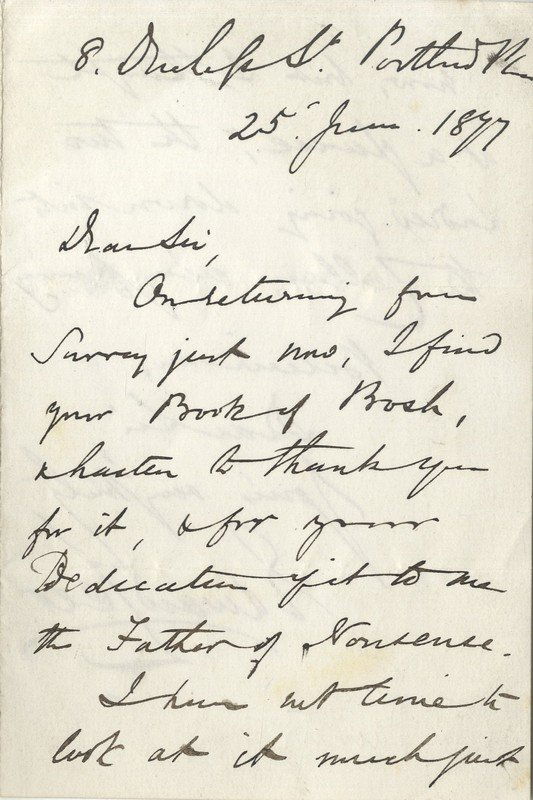 8. Duchess St. Portland Plce
25. June. 1877
Dear Sir,
On returning from
Surrey just now, I find
your Book of Bosh,
& hasten to thank you
for it, & for your
Dedication of it to me
the Father of Nonsense.
I have not time to
look at it much just